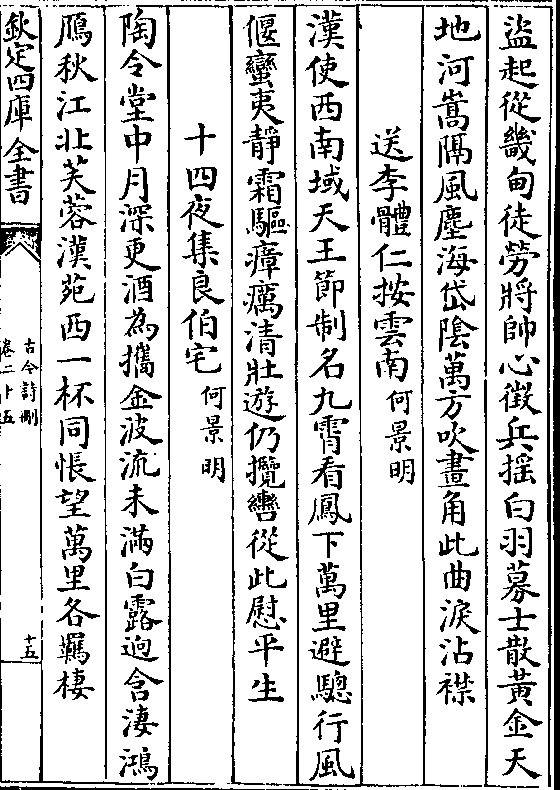 盜起從畿甸徒勞將帥心徴兵揺白羽募士散黃金天
地河嵩隔風塵海岱陰萬方吹畫角此曲淚沾襟
送李體仁按雲南 何景明
漢使西南域天王節制名九霄看鳳下萬里避驄行風
偃蠻夷靜霜驅瘴癘清壯遊仍攬轡從此慰平生
十四夜集良伯宅 何景明
陶令堂中月深更酒為攜金波流未滿白露逈含淒鴻
鴈秋江北芙蓉漢苑西一杯同悵望萬里各羈棲
欽定四庫全書
古今詩刪
卷二十五
十五